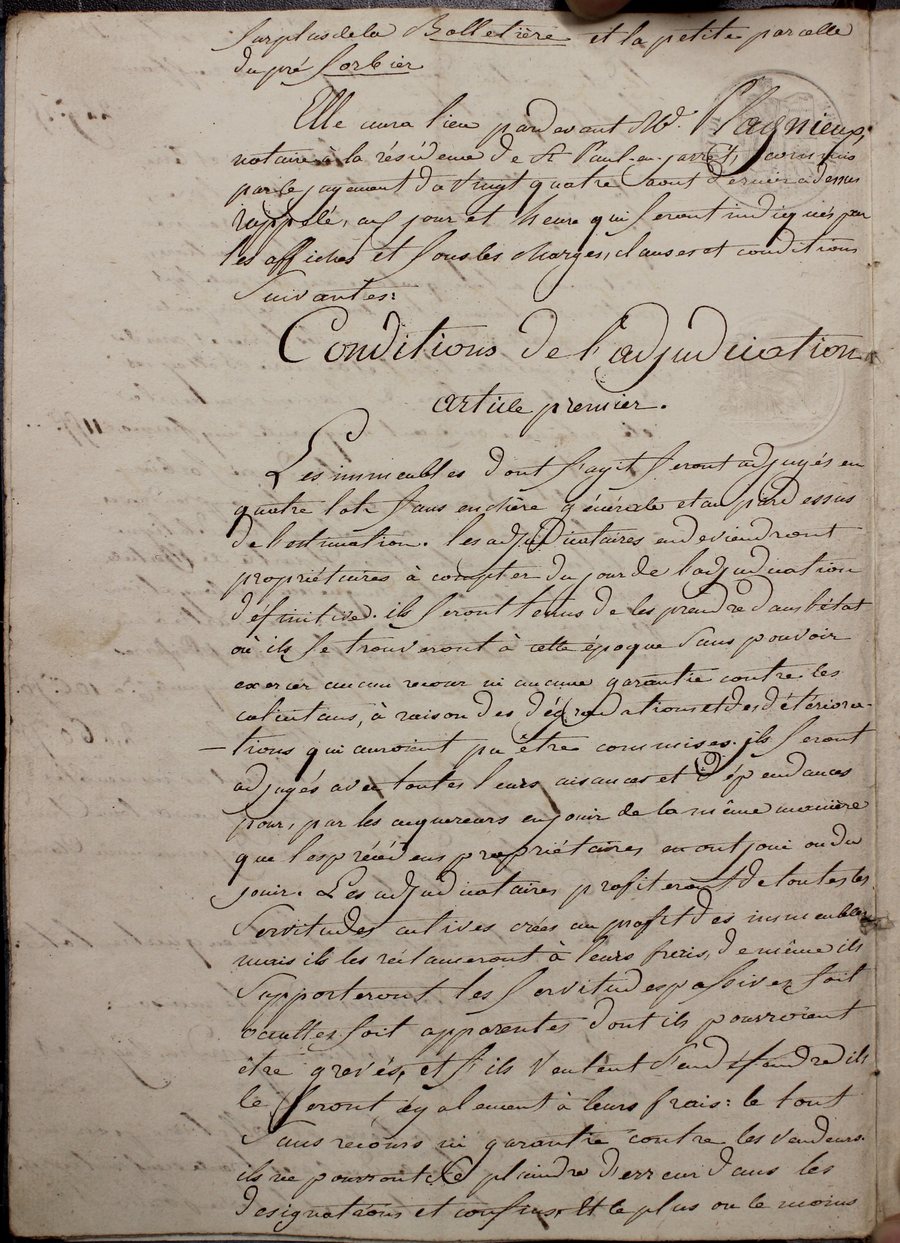 surplus de la Bolletière et la petite parcelle
du pré Sorbier
Elle aura lieu pardevant Me. Plagnieux,
notaire à la résidence de St Paul-en-jarret, commis
par le jugement du vingt quatre aout dernier ci dessus
rappelé, aux jour et heure qui seront indiqués par
les affiches et sous les charges, clauses et conditions
suivantes:
Conditions de l'adjudication
article premier.
Les immeubles dont s'agit seront adjugés en
quatre lots sans enchère générale et au pardessus
de l'estimation. les adjudicataires en deviendront
propriétaires à compter du jour de l'adjudication
définitive. ils seront tenus de les prendre dans l'état
où ils se trouveront à cette époque sans pouvoir
exercer aucun recour ni aucune garantie contre les
colicitans, à raison des dégradations et des détériora-
-tions qui auroient pu être commises. ils seront
adjugés avec toutes leurs aisances et dépendances
pour, par les acquereurs en jouir de la même manière
que les précédens propriétaires en ont joui ou du
jouir. Les adjudicataires profiteront de toutes les
servitudes actives crées au profit des immeubles
mais ils les réclameront à leurs frais, de même ils
supporteront les servitudes passives soit
occultes soit apparentes dont ils pourroient
être grevés, et s'ils veulent s'en défendre ils
le feront également à leurs frais: le tout
sans recours ni garantie contre les vendeurs.
ils ne pourront se plaindre d'erreur dans les
designations et confins. Et le plus ou le moins